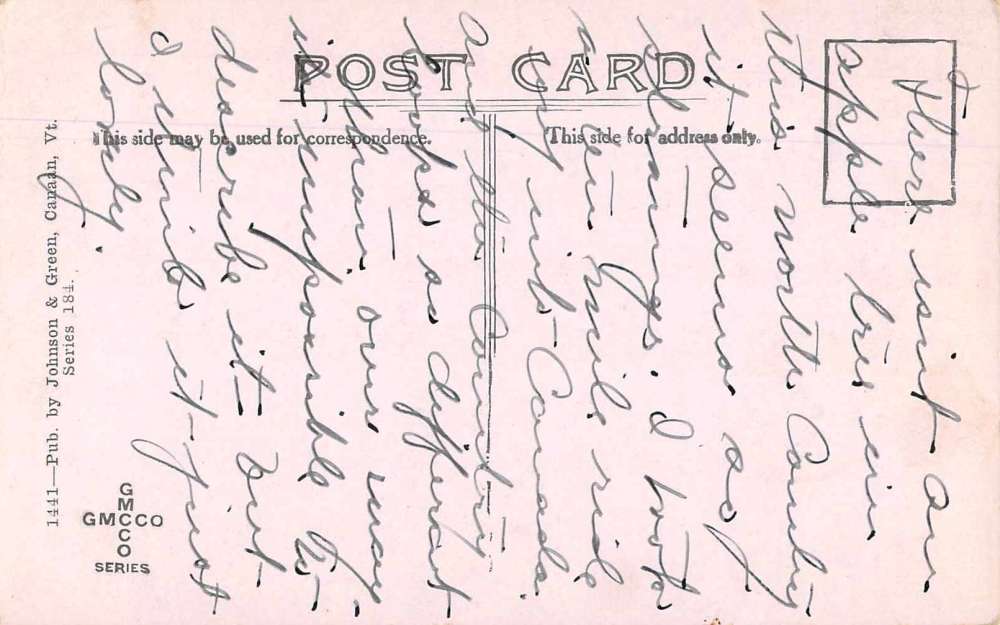 POST CARD
This side may be used for correspondence.
This side for address only.
There isint an
apple tree in
this north Country
it seems so
strange. I took
a ten mile ride
into Canada
and the Country
looks so different
than our way.
its impossible to
describe it but
I think it just
lovely.
1441—Pub. by Johnson & Green, Canaan, Vt.
Series 184.
GMCCO
GMCCO
SERIES